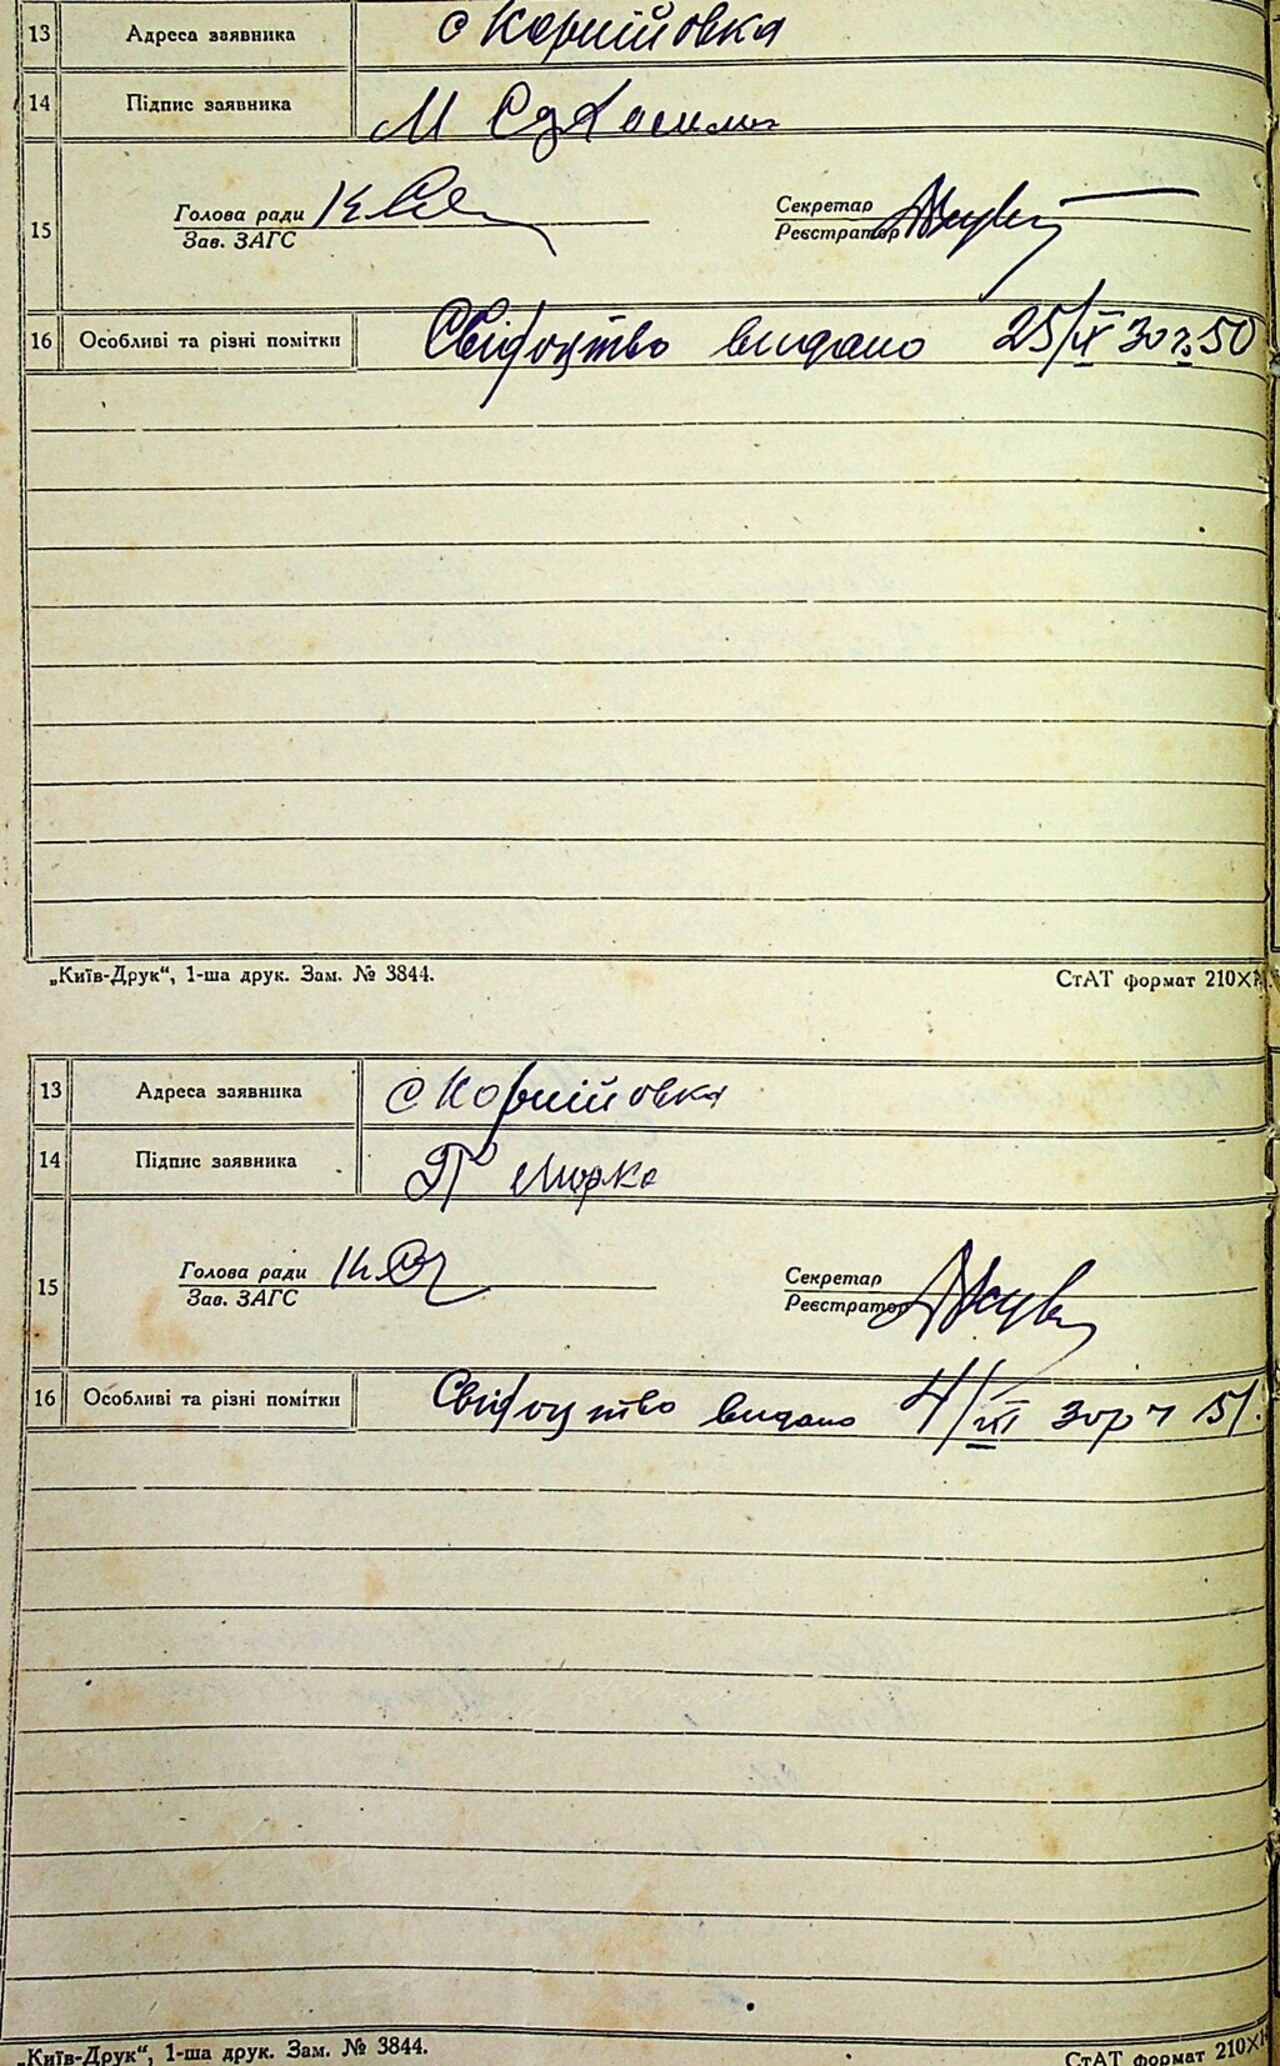 13 Адреса заявника с Корнійовка
14 Підпис заявника М
15 Голова ради Секретар
Зав. ЗАГС Реєстратор
16 Особливі та різні помітки Свідоцтво видано 25/IX 30 р 50
„Київ-Друк“, 1-ша друк. Зам. № 3844. СтАТ формат 210×
13 Адреса заявника с Корнійовка
14 Підпис заявника
15 Голова ради Секретар
Зав. ЗАГС Реєстратор
16 Особливі та різні помітки Свідоцтво видано 4/ 30р ч 51.
„Київ-Друк“, 1-ша друк. Зам. № 3844. СтАТ формат 210×